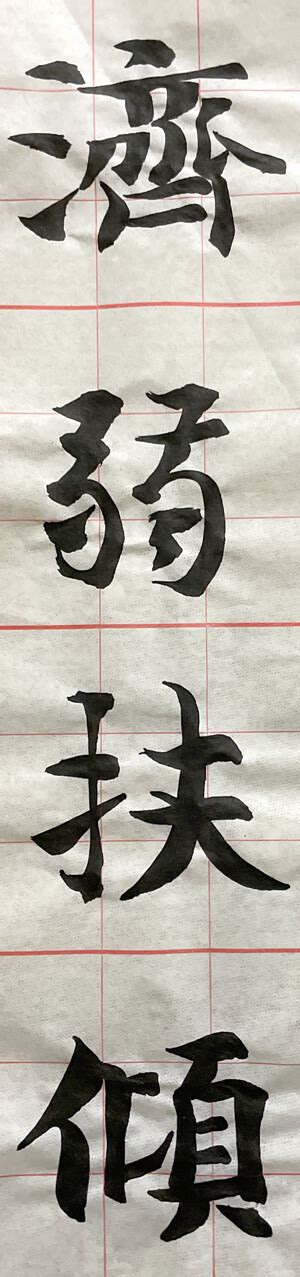 濟弱扶傾